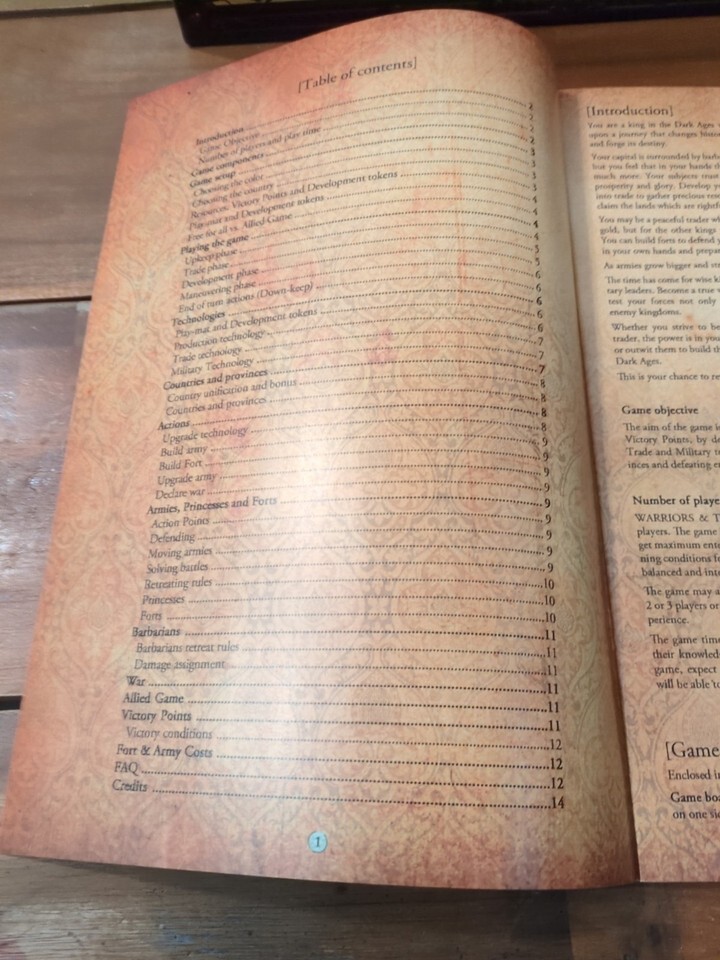 [Table of contents]
Introduction 2
Game Objective 2
Number of players and play time 2
Game components 2
Game setup 3
Choosing the color 3
Choosing the country 3
Resources, Victory Points and Development tokens 3
Play-mat and Development tokens 4
Free for all vs. Allied Game 4
Playing the game 4
Upkeep phase 4
Trade phase 5
Development phase 5
Maneuvering phase 6
End of turn actions (Down-keep) 6
Technologies 6
Play-mat and Development tokens 6
Production technology 6
Trade technology 7
Military Technology 7
Countries and provinces 7
Country unification and bonus 8
Countries and provinces 8
Actions 8
Upgrade technology 8
Build army 9
Build Fort 9
Upgrade army 9
Declare war 9
Armies, Princesses and Forts 9
Action Points 9
Defending 9
Moving armies 9
Solving battles 9
Retreating rules 10
Princesses 10
Forts 10
Barbarians 11
Barbarians retreat rules 11
Damage assignment 11
War 11
Allied Game 11
Victory Points 11
Victory conditions 12
Fort & Army Costs 12
FAQ 12
Credits 14
1
[Introduction]
You are a king in the Dark Ages
upon a journey that changes
and forge its destiny.
Your capital is surrounded by
but you feel that in your hands
much more. Your subjects trust
prosperity and glory. Develop
into trade to gather precious
claim the lands which are
You may be a peaceful trader
gold, but for the other kings
You can build forts to defend
in your own hands and
As armies grow bigger and
The time has come for wise
tary leaders. Become a true
test your forces not only
enemy kingdoms.
Whether you strive to be
trader, the power is in
or outwit them to build
Dark Ages.
This is your chance to
Game objective
The aim of the game
Victory Points, by
Trade and Military
inces and defeating
Number of
WARRIORS &
players. The game
get maximum
ning conditions
balanced and
The game may
2 or 3 players or
perience.
The game
their
game, expect
will be able
[Game
Enclosed
Game
on one